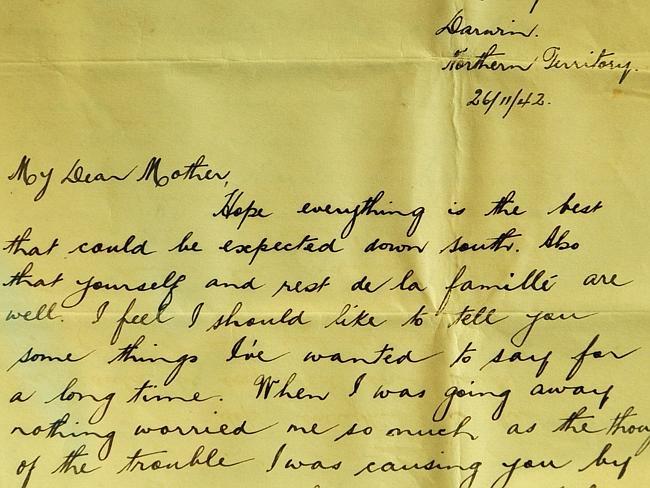 Darwin.
Northern Territory.
26/11/42.
My Dear Mother,
Hope everything is the best
that could be expected down south. Also
that yourself and rest de la famillé are
well. I feel I should like to tell you
some things I've wanted to say for
a long time. When I was going away
nothing worried me so much as the thou
of the trouble I was causing you by